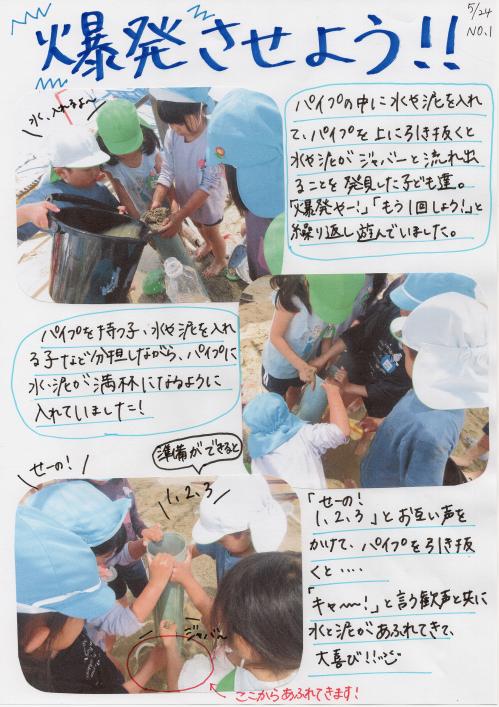 爆発させよう!!
5/24
NO.1
水、入れるよ〜
パイプの中に水や泥を入れ
て、パイプを上に引き抜くと
水や泥がジャバーと流れ出
ることを発見した子ども達。
「爆発やー!」「もう1回しよう!」と
繰り返し遊んでいました。
パイプを持つ子、水や泥を入れ
る子など分担しながら、パイプに
水・泥が満杯になるように
入れていました!
せーの!
準備ができると
1, 2, 3
ジャバーん
ここからあふれてきます!
「せーの!
1, 2, 3」とお互い声を
かけて、パイプを引き抜
くと・・・・
「キャ〜!」と言う歓声と共に
水と泥があふれてきて、
大喜び!!